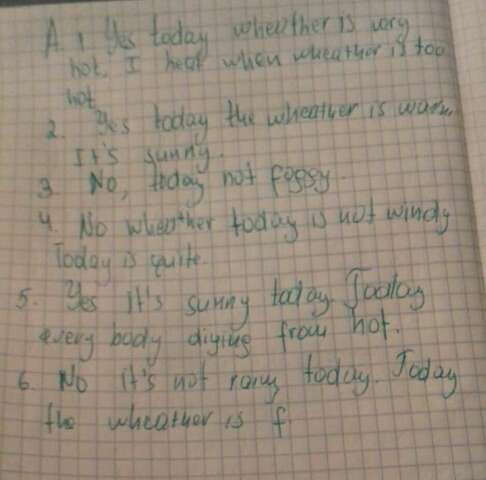 A 1 Yes today wheather is very
hot. I heat when wheather is too
hot
2. Yes today the wheather is warm
It's sunny.
3 No, today not foggy.
4. No wheather today is not windy
Today is quite.
5. Yes it's sunny today. Today
every body diying from hot.
6. No it's not rany today. Today
the wheather is f